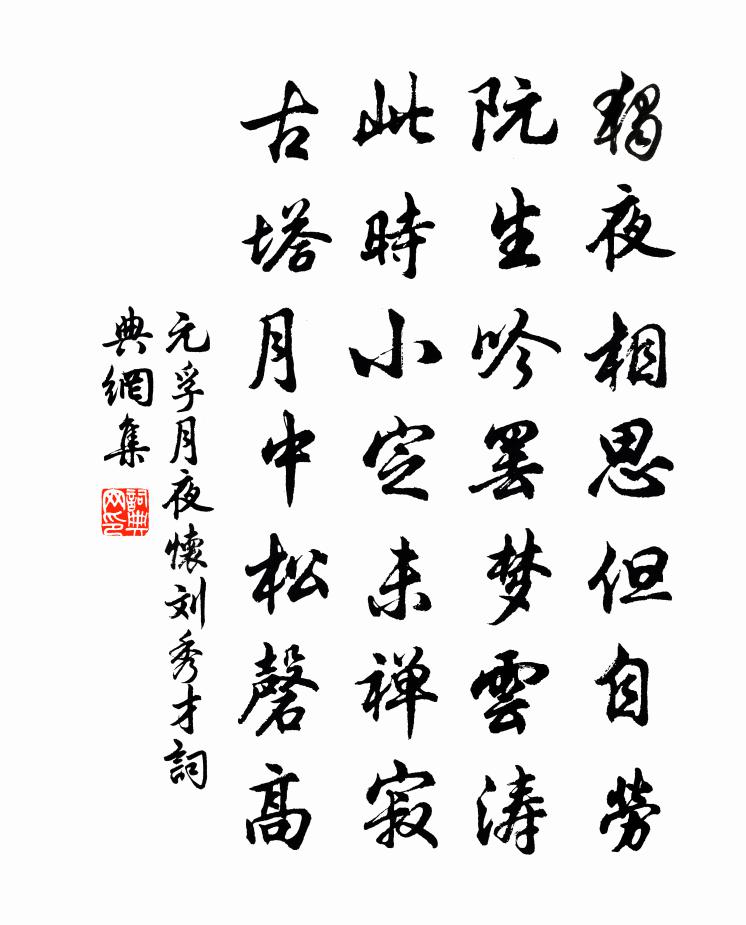 獨夜相思但自勞
阮生吟罷梦雲涛
此時小定未禅寂
古塔月中松磬高
元孚月夜懷刘秀才詞
典網集
詞典網印